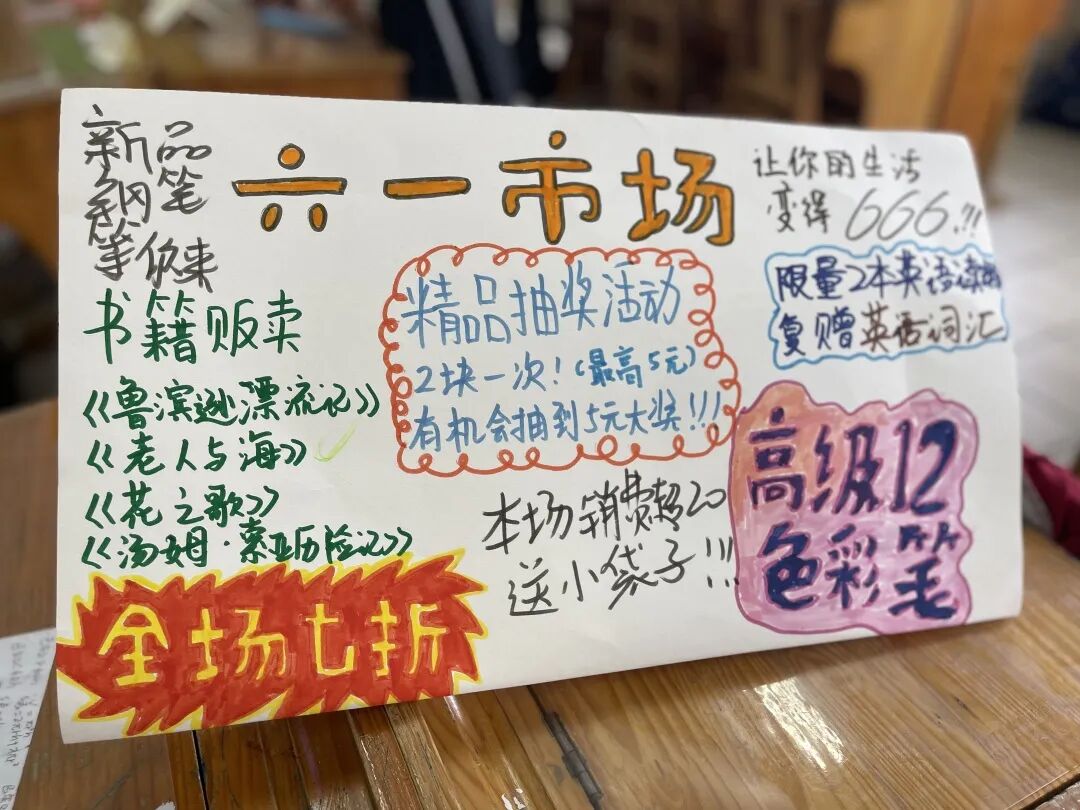 新品
钢笔
等你来
六一市场
让你的生活
变得666!!!
书籍贩卖
《鲁滨逊漂流记》
《老人与海》
《花之歌》
《汤姆·索亚历险记》
精品抽奖活动
2块一次!(最高5元)
有机会抽到5元大奖!!!
限量2本英语
复赠英语词汇
本场销费超20
送小袋子!!!
高级12
色彩笔
全场七折